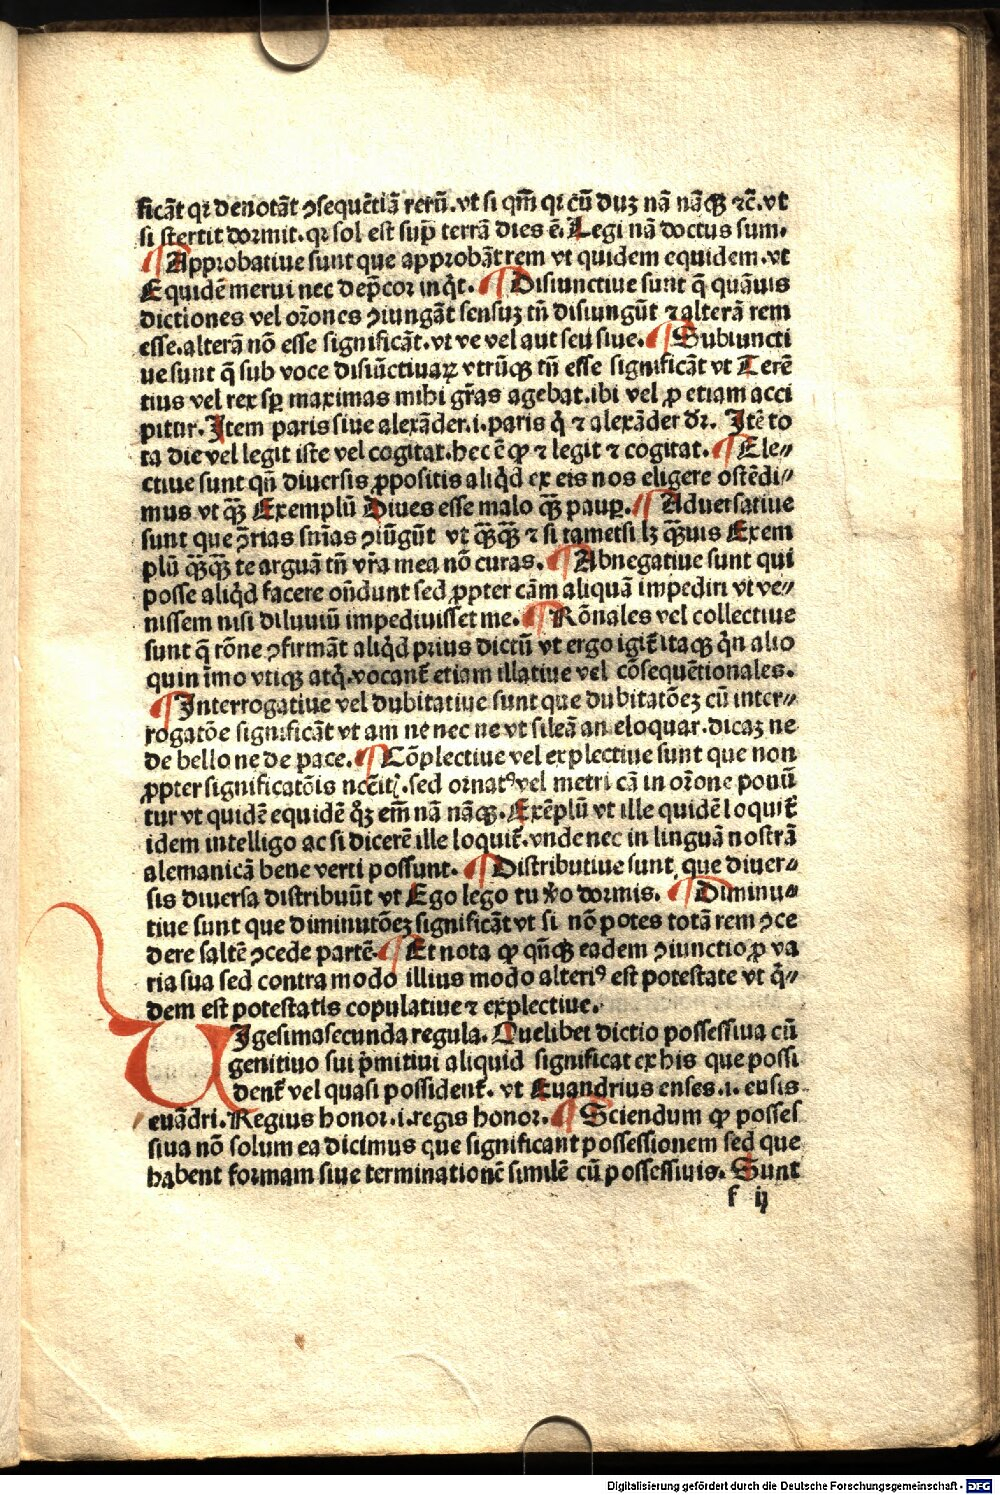 ficãt qꝛ denotãt ꝯsequẽtiã rerũ. vt si qm̃ qꝛ cũ duꝫ nã nãqꝫ ⁊c̃. vt
si stertit dormit. qꝛ sol est sup̃ terrã dies ẽ. Legi nã doctus sum.
¶ Approbatiue sunt que approbãt rem vt quidem equidem. vt
Equidẽ merui nec dep̃cor inq̇t. ¶ Disiunctiue sunt q̃ quãuis
dictiones vel orõnes ꝯiungãt sensuꝫ tñ disiungũt ⁊ alterã rem
esse. alterã nõ esse significãt. vt ve vel aut seu siue. ¶ Subiuncti
ue sunt q̃ sub voce disiũctiuaꝝ vtrũqꝫ tñ esse significãt vt Terẽ
tius vel rex sꝑ maximas mihi gr̃as agebat. ibi vel ꝓ etiam acci
pitur. Item paris siue alexãder. i. paris q̇ ⁊ alexãder dr̃. Itẽ to
ta die vel legit iste vel cogitat. hec ẽ ꝙ ⁊ legit ⁊ cogitat. ¶ Ele⸗
ctiue sunt qñ diuersis ꝓpositis aliq̇d ex eis nos eligere ostẽdi⸗
mus vt q̃ꝫ Exemplũ Diues esse malo q̃ꝫ pauꝑ. ¶ Aduersatiue
sunt que ꝯ̃rias sñias ꝯiũgũt vt q̃ꝫq̃ꝫ ⁊ si tametsi lꝫ q̃ꝫuis Exem
plũ q̃ꝫq̃ꝫ te arguã tñ vr̃a mea nõ curas. ¶ Abnegatiue sunt qui
posse aliq̇d facere oñdunt sed ꝓpter cãm aliquã impediri vt ve⸗
nissem nisi diluuiũ impediuisset me. ¶ Rõnales vel collectiue
sunt q̃ rõne ꝯfirmãt aliq̇d prius dictũ vt ergo igit̃ itaqꝫ q̇n alio
quin im̃o vtiqꝫ atq̇. vocant̃ etiam illatiue vel cõsequẽtionales.
¶ Interrogatiue vel dubitatiue sunt que dubitatõeꝫ cũ inter⸗
rogatõe significãt vt an ne nec ne vt sileã an eloquar. dicaꝫ ne
de bello ne de pace. ¶ Cõplectiue vel explectiue sunt que non
ꝓpter significatõis ncc̃itꝭ. sed ornatꝰ vel metri cã in orõne ponũ
tur vt quidẽ equidẽ q̇ꝫ em̃ nã nãqꝫ. Exẽplũ vt ille quidẽ loquit̃
idem intelligo ac si dicerẽ ille loquit̃. vnde nec in linguã nostrã
alemanicã bene verti possunt. ¶ Distributiue sunt que diuer⸗
sis diuersa distribuũt vt Ego lego tu ṽo dormis. ¶ Diminu⸗
tiue sunt que diminutõeꝫ significãt vt si nõ potes totã rem ꝯce
dere saltẽ ꝯcede partẽ. ¶ Et nota ꝙ qñqꝫ eadem ꝯiunctio ꝓ va
ria sua sed contra modo illius modo alteriꝰ est potestate vt q̇⸗
dem est potestatis copulatiue ⁊ explectiue.
VIgesimasecunda regula. Quelibet dictio possessiua cũ
genitiuo sui p̃mitiui aliquid significat ex his que possi
dent̃ vel quasi possident̃. vt Euandrius enses. i. ensis
euãdri. Regius honor. i. regis honor. ¶ Sciendum ꝙ posses
siua nõ solum ea dicimus que significant possessionem sed que
habent formam siue terminationẽ similẽ cũ possessiuis. Sunt
f ij
Digitalisierung gefördert durch die Deutsche Forschungsgemeinschaft - DFG